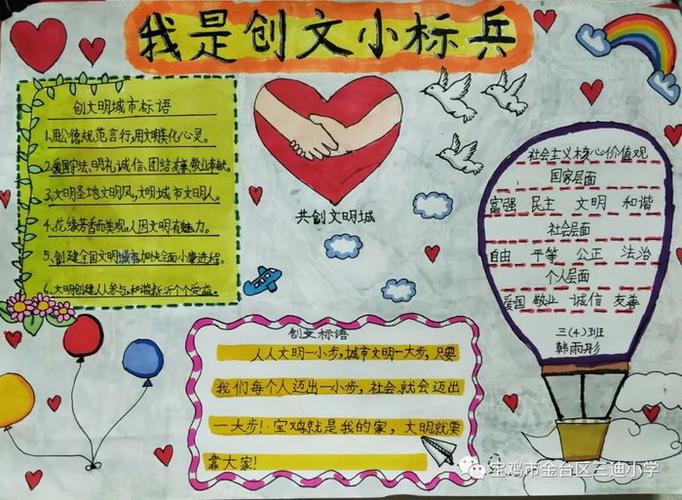 我是创文小标兵
创文明城市标语
1、用公德规范言行,用文明美化心灵。
2、爱国守法、明礼诚信、团结友善、敬业奉献。
3、文明圣地文明风,文明城市文明人。
4、花缘芳香而美观,人因文明有魅力。
5、创建全国文明城市,加快全面小康进程。
6、文明创建人人参与,和谐新沂个个受益。
共创文明城
社会主义核心价值观
国家层面
富强 民主 文明 和谐
社会层面
自由 平等 公正 法治
个人层面
爱国 敬业 诚信 友善
三(4)班
韩雨彤
创文标语
人人文明一小步,城市文明一大步,只要
我们每个人迈出一小步,社会就会迈出
一大步!宝鸡就是我的家,文明就要
靠大家!
宝鸡市金台区三迪小学